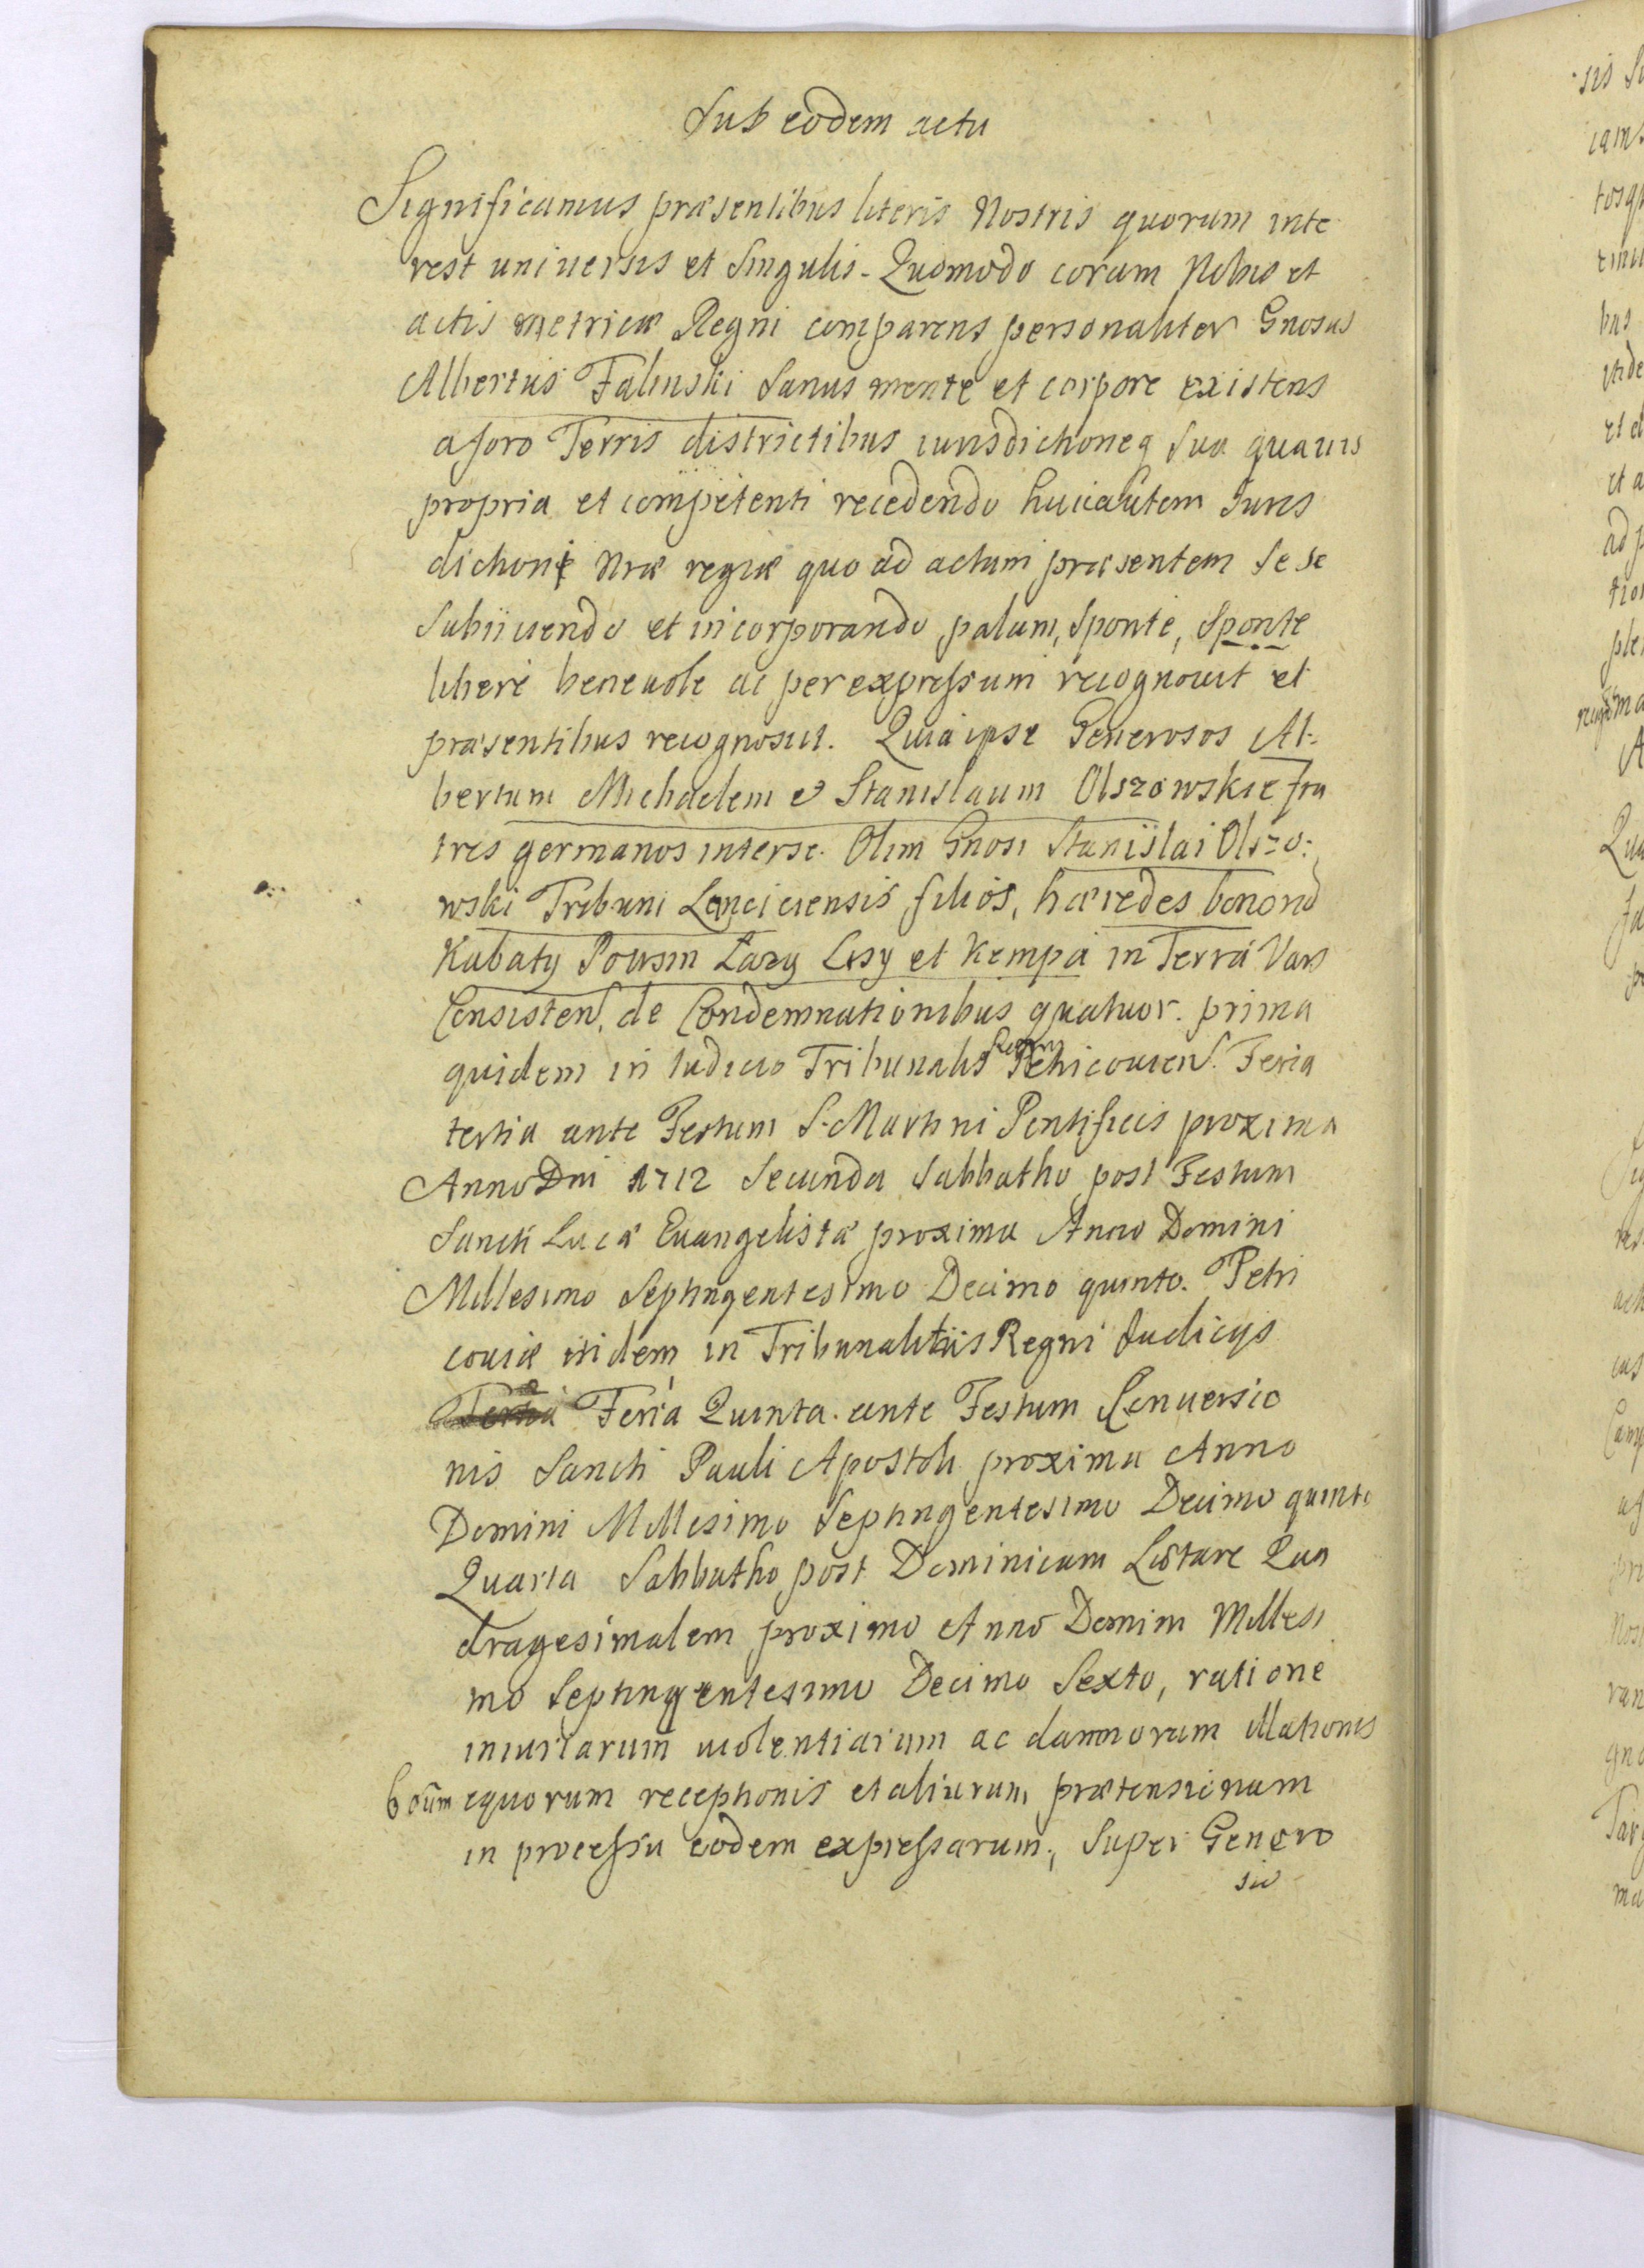 Sub eodem actu
Significamus præsentibus literis Nostris quorum inte
rest universis et Singulis - Quomodo coram Nobis et
actis metricæ Regni comparens personaliter Gnosus
Albertus Falinski Sanus mente et corpore existens
a foro Terris districtibus iurisdictioneq sua quavis
propria et competenti recedendo huic autem Iuris
dictioni Nræ regiæ quo ad actum præsentem se se
Subiiciendo et incorporando palam, sponte, sponte
libere benevole ac per expressum recognovit et
præsentibus recognoscit. Quia ipse Generosos Al:
bertum Michaelem et Stanislaum Olszowskie fra
tres germanos inter se. Olim Gnosi Stanislai Olszo:
wski Tribuni Lanciciensis filios, hæredes bonorū
Kubaty Powsin Lazy Lisy et Kempa in Terra Vars
Consisten. de Condemnationibus quatuor. prima
quidem in Iudicio Tribunalis Regni Petricovien. Feria
tertia ante Festum S. Martini Pontificis proxima
Anno Dni 1712 Secunda Sabbatho post Festum
Sancti Lucæ Evangelistæ proximo Anno Domini
Millesimo Septingentesimo Decimo quinto. Petri
coviæ itidem in Tribunalitiis Regni Judicijs
Tertia Feria Quinta ante Festum Conversio
nis Sancti Pauli Apostoli proxima Anno
Domini Millesimo Septingentesimo Decimo quinto
Quarta Sabbatho post Dominicam Lætare Qua
dragesimalem proximo Anno Domini Millesi
mo Septingentesimo Decimo Sexto, ratione
iniuriarum violentiarum ac damnorum illationis
boūm equorum receptionis et aliarum prætensionum
in processu eodem expressarum, Super Genero
sis